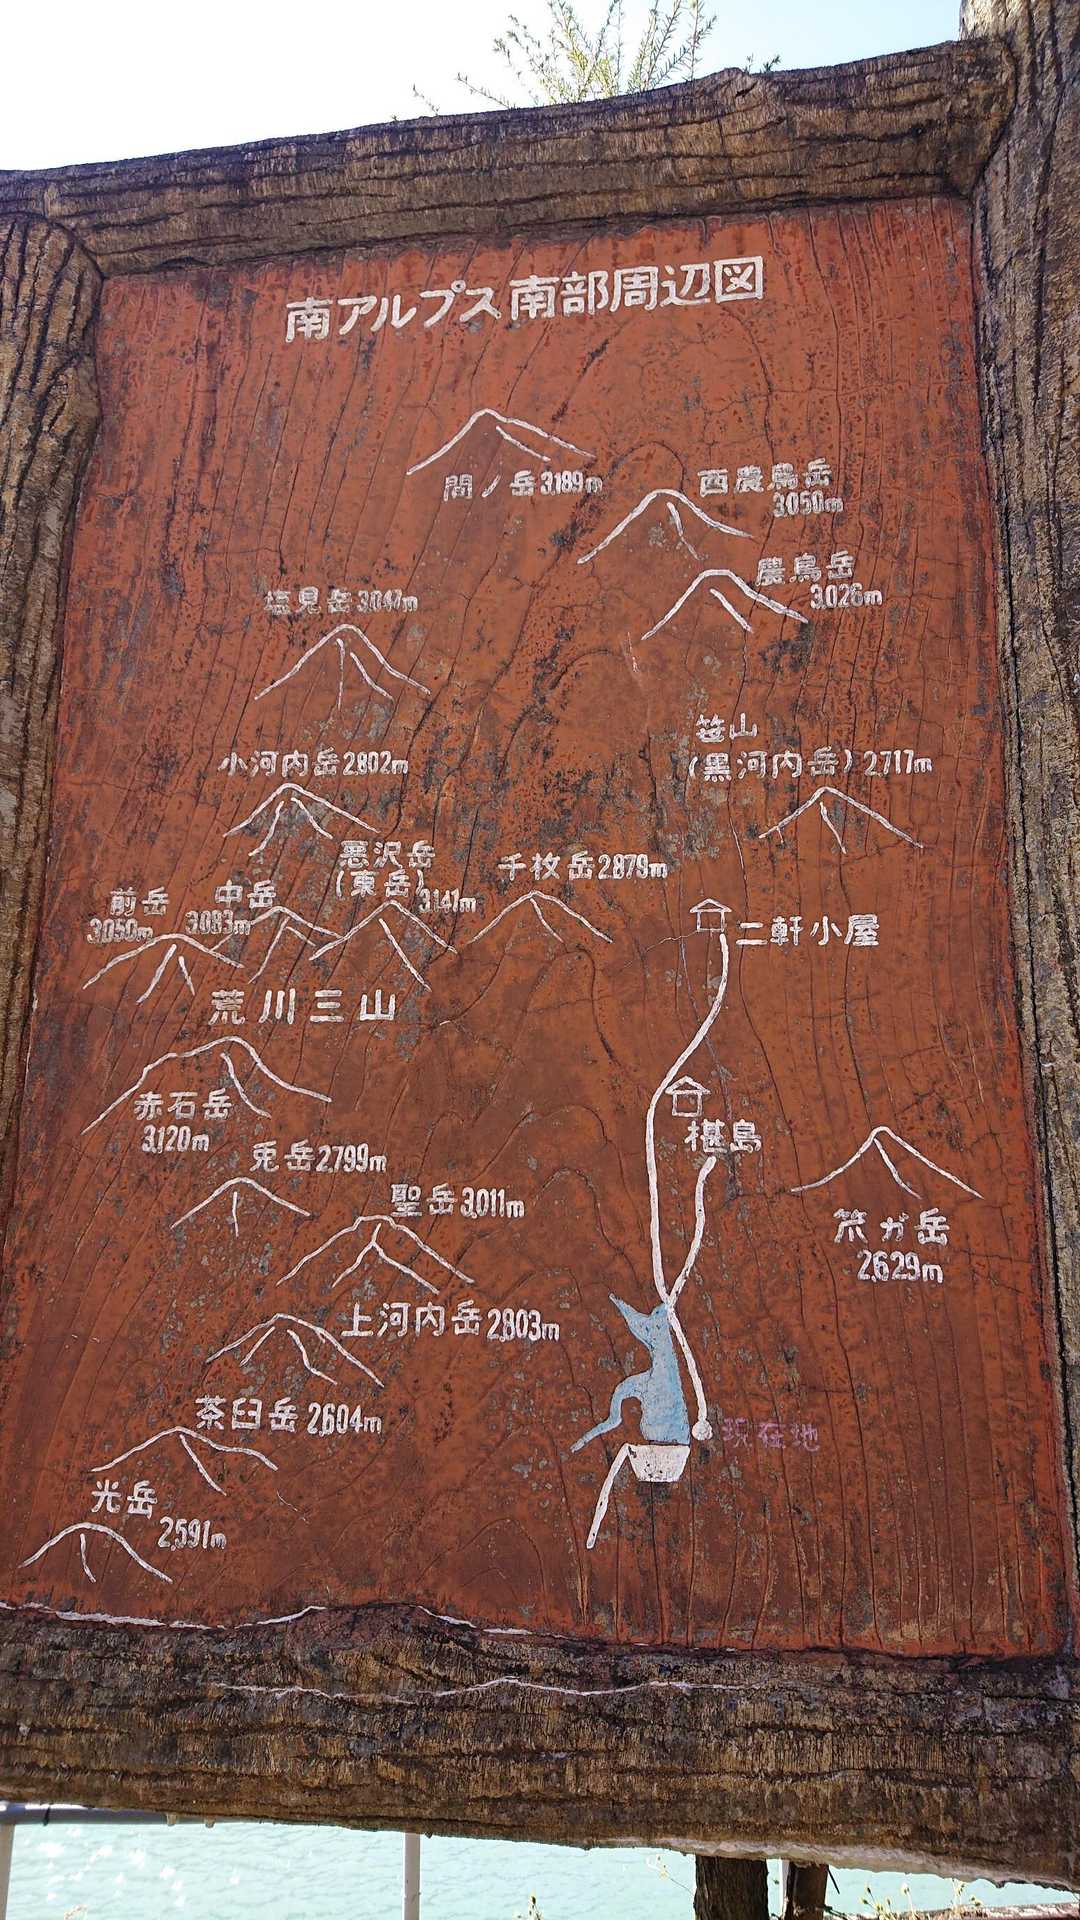 南アルプス南部周辺図
間ノ岳3,189m
西農鳥岳
3,050m
農鳥岳
3,026m
塩見岳3,047m
笹山
(黒河内岳)2,717m
小河内岳2,802m
悪沢岳
(東岳)
3,141m
千枚岳2,879m
前岳
3,050m
中岳
3,083m
二軒小屋
荒川三山
赤石岳
3,120m
椹島
兎岳2,799m
聖岳3,011m
笊ガ岳
2,629m
上河内岳2,803m
茶臼岳2,604m
現在地
光岳
2,591m